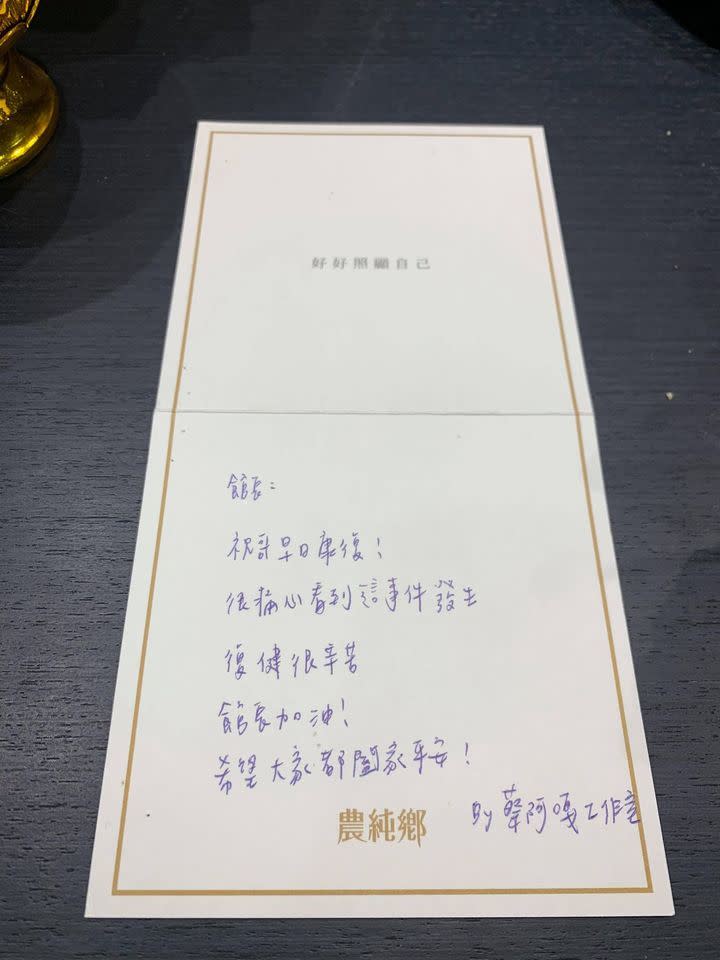 好好照顧自己
館長：
祝哥早日康復！
很痛心看到這事件發生
復健很辛苦
館長加油！
希望大家都闔家平安！
By 蔡阿嘎工作室
農純鄉